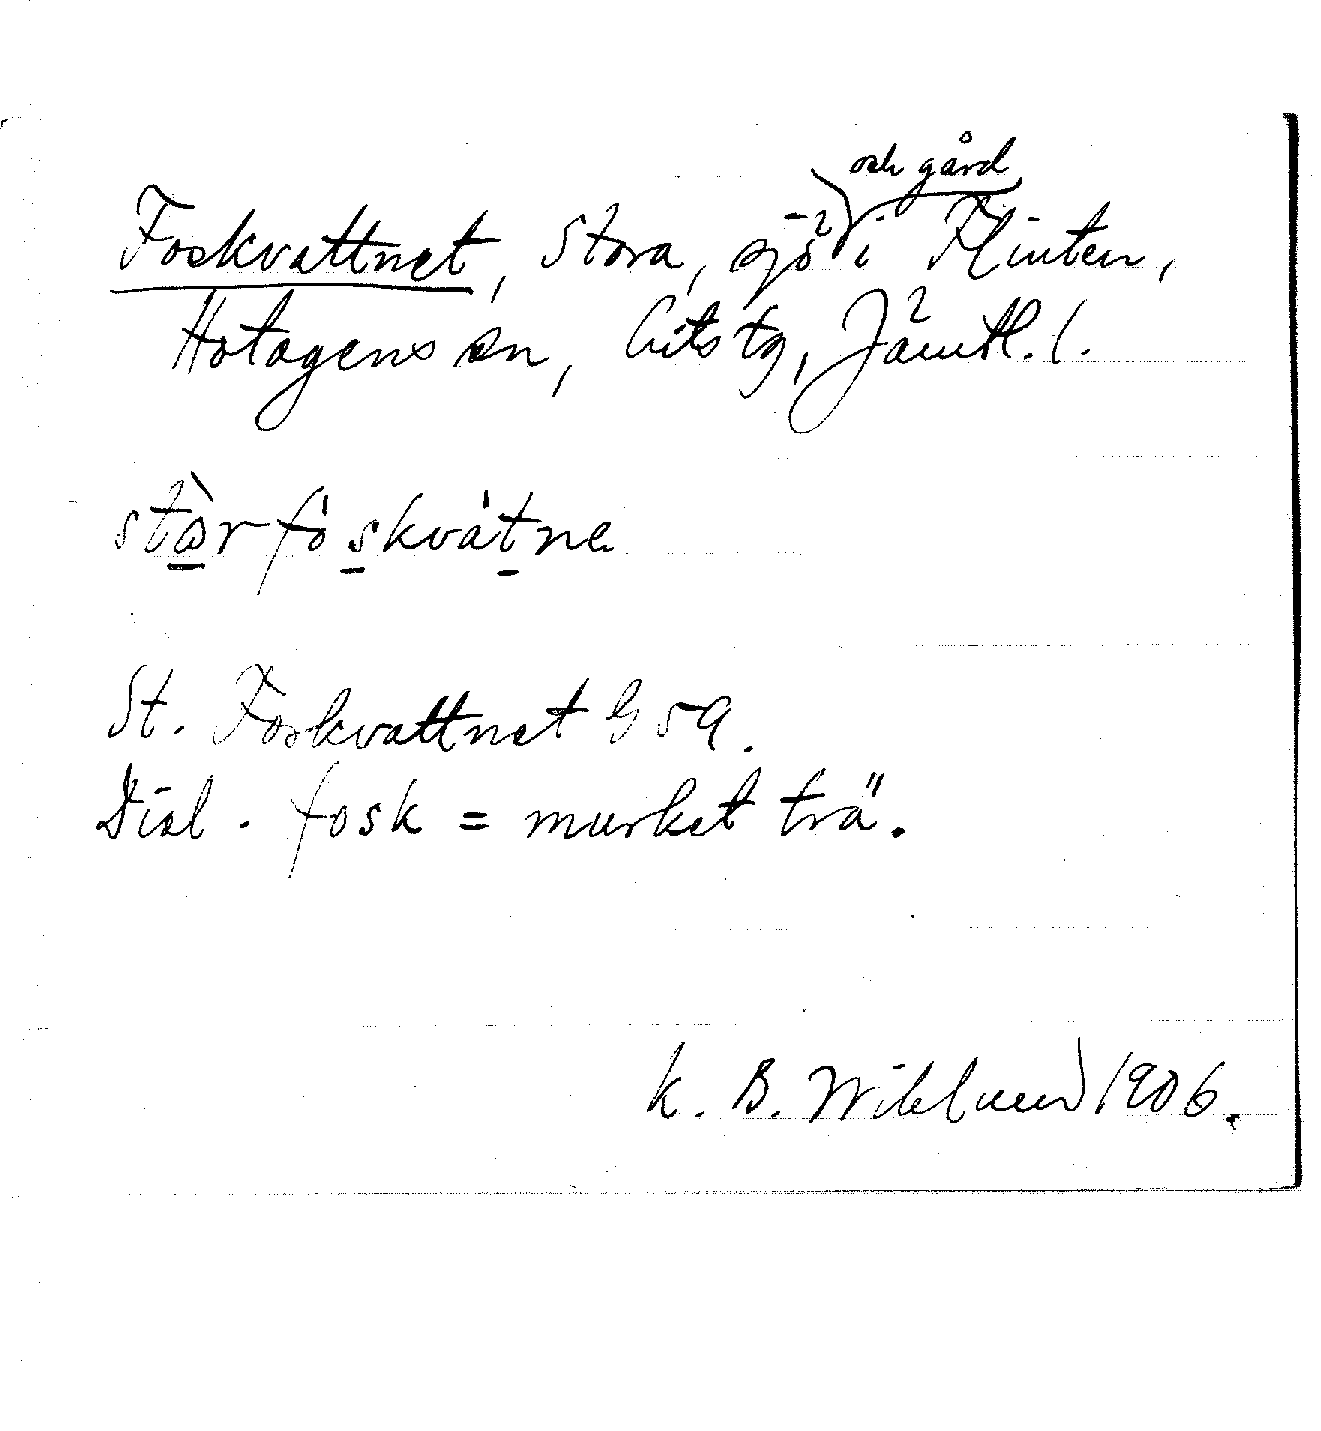 Foskvattnet, Stora, sjö och gård i Flinten,
Hotagens sn, Lits tg, Jämtl. l.
stòrfòskvátne
St. Foskvattnet G 59.
Dial. fosk = murket trä.
K. B. Wiklund 1906.